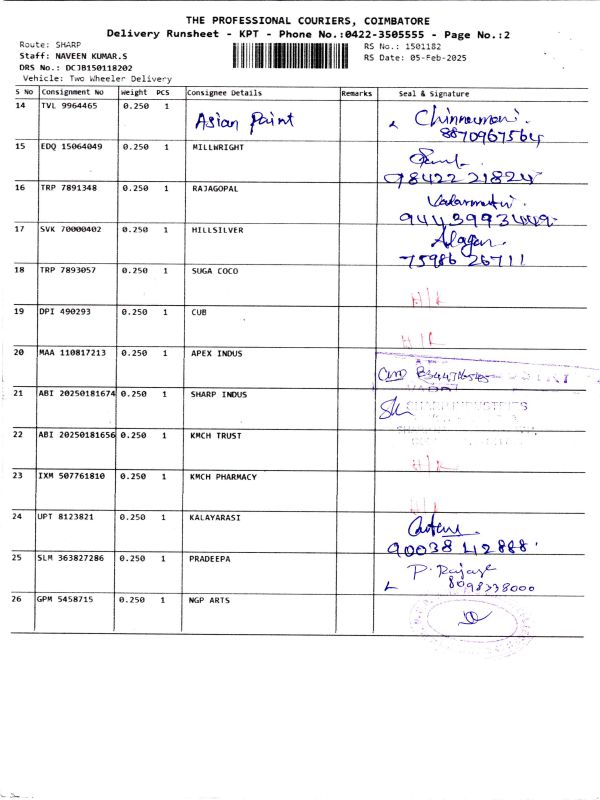 THE PROFESSIONAL COURIERS, COIMBATORE
Delivery Runsheet - KPT - Phone No.:0422-3505555 - Page No.:2
Route: SHARP
RS No.: 1501182
Staff: NAVEEN KUMAR.S
RS Date: 05-Feb-2025
DRS No.: DCJB150118202
Vehicle: Two Wheeler Delivery
S No Consignment No Weight PCS Consignee Details Remarks Seal & Signature
14 TVL 9964465 0.250 1 Asian Paint
8870967564
15 EDQ 15064049 0.250 1 MILLWRIGHT
98422 21824
16 TRP 7891348 0.250 1 RAJAGOPAL
Valarmathi.
17 SVK 70000402 0.250 1 HILLSILVER
Alagar.
75986 26711
18 TRP 7893057 0.250 1 SUGA COCO
19 DPI 490293 0.250 1 CUB
20 MAA 110817213 0.250 1 APEX INDUS
21 ABI 20250181674 0.250 1 SHARP INDUS
22 ABI 20250181656 0.250 1 KMCH TRUST
23 IXM 507761810 0.250 1 KMCH PHARMACY
24 UPT 8123821 0.250 1 KALAYARASI
90038 42888
25 SLM 363827286 0.250 1 PRADEEPA
26 GPM 5458715 0.250 1 NGP ARTS